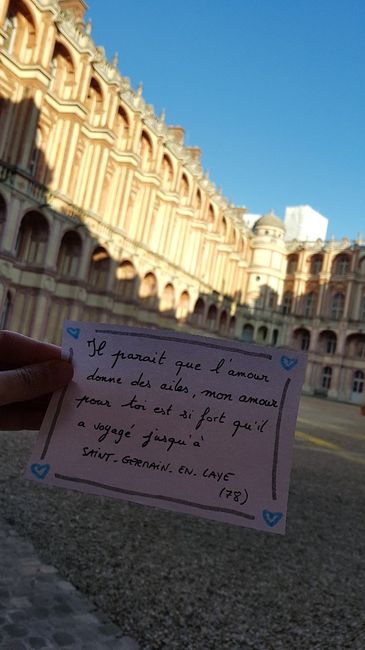 Il parait que l'amour
donne des ailes, mon amour
pour toi est si fort qu'il
a voyagé jusqu'à
SAINT-GERMAIN-EN-LAYE
(78)